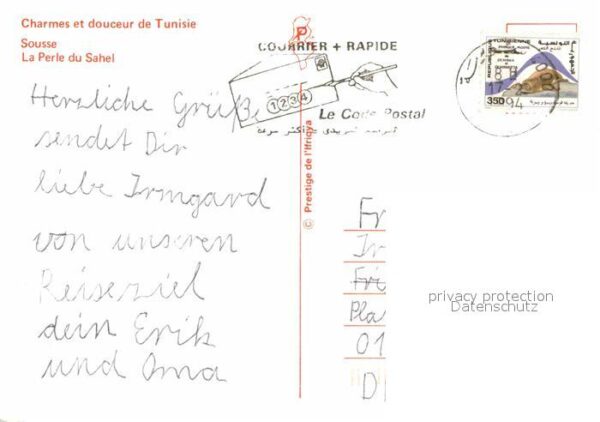 Charmes et douceur de Tunisie
Sousse
La Perle du Sahel
COURRIER + RAPIDE
1 2 3 4
Le Code Postal
350
17
94
Herzliche Grüße
sendet Dir
liebe Irmgard
von unseren
Reiseziel
dein Erik
und Oma
© Prestige de l'Ifriqya
Fr
Ir
Fri
Pla
01
D
privacy protection
Datenschutz